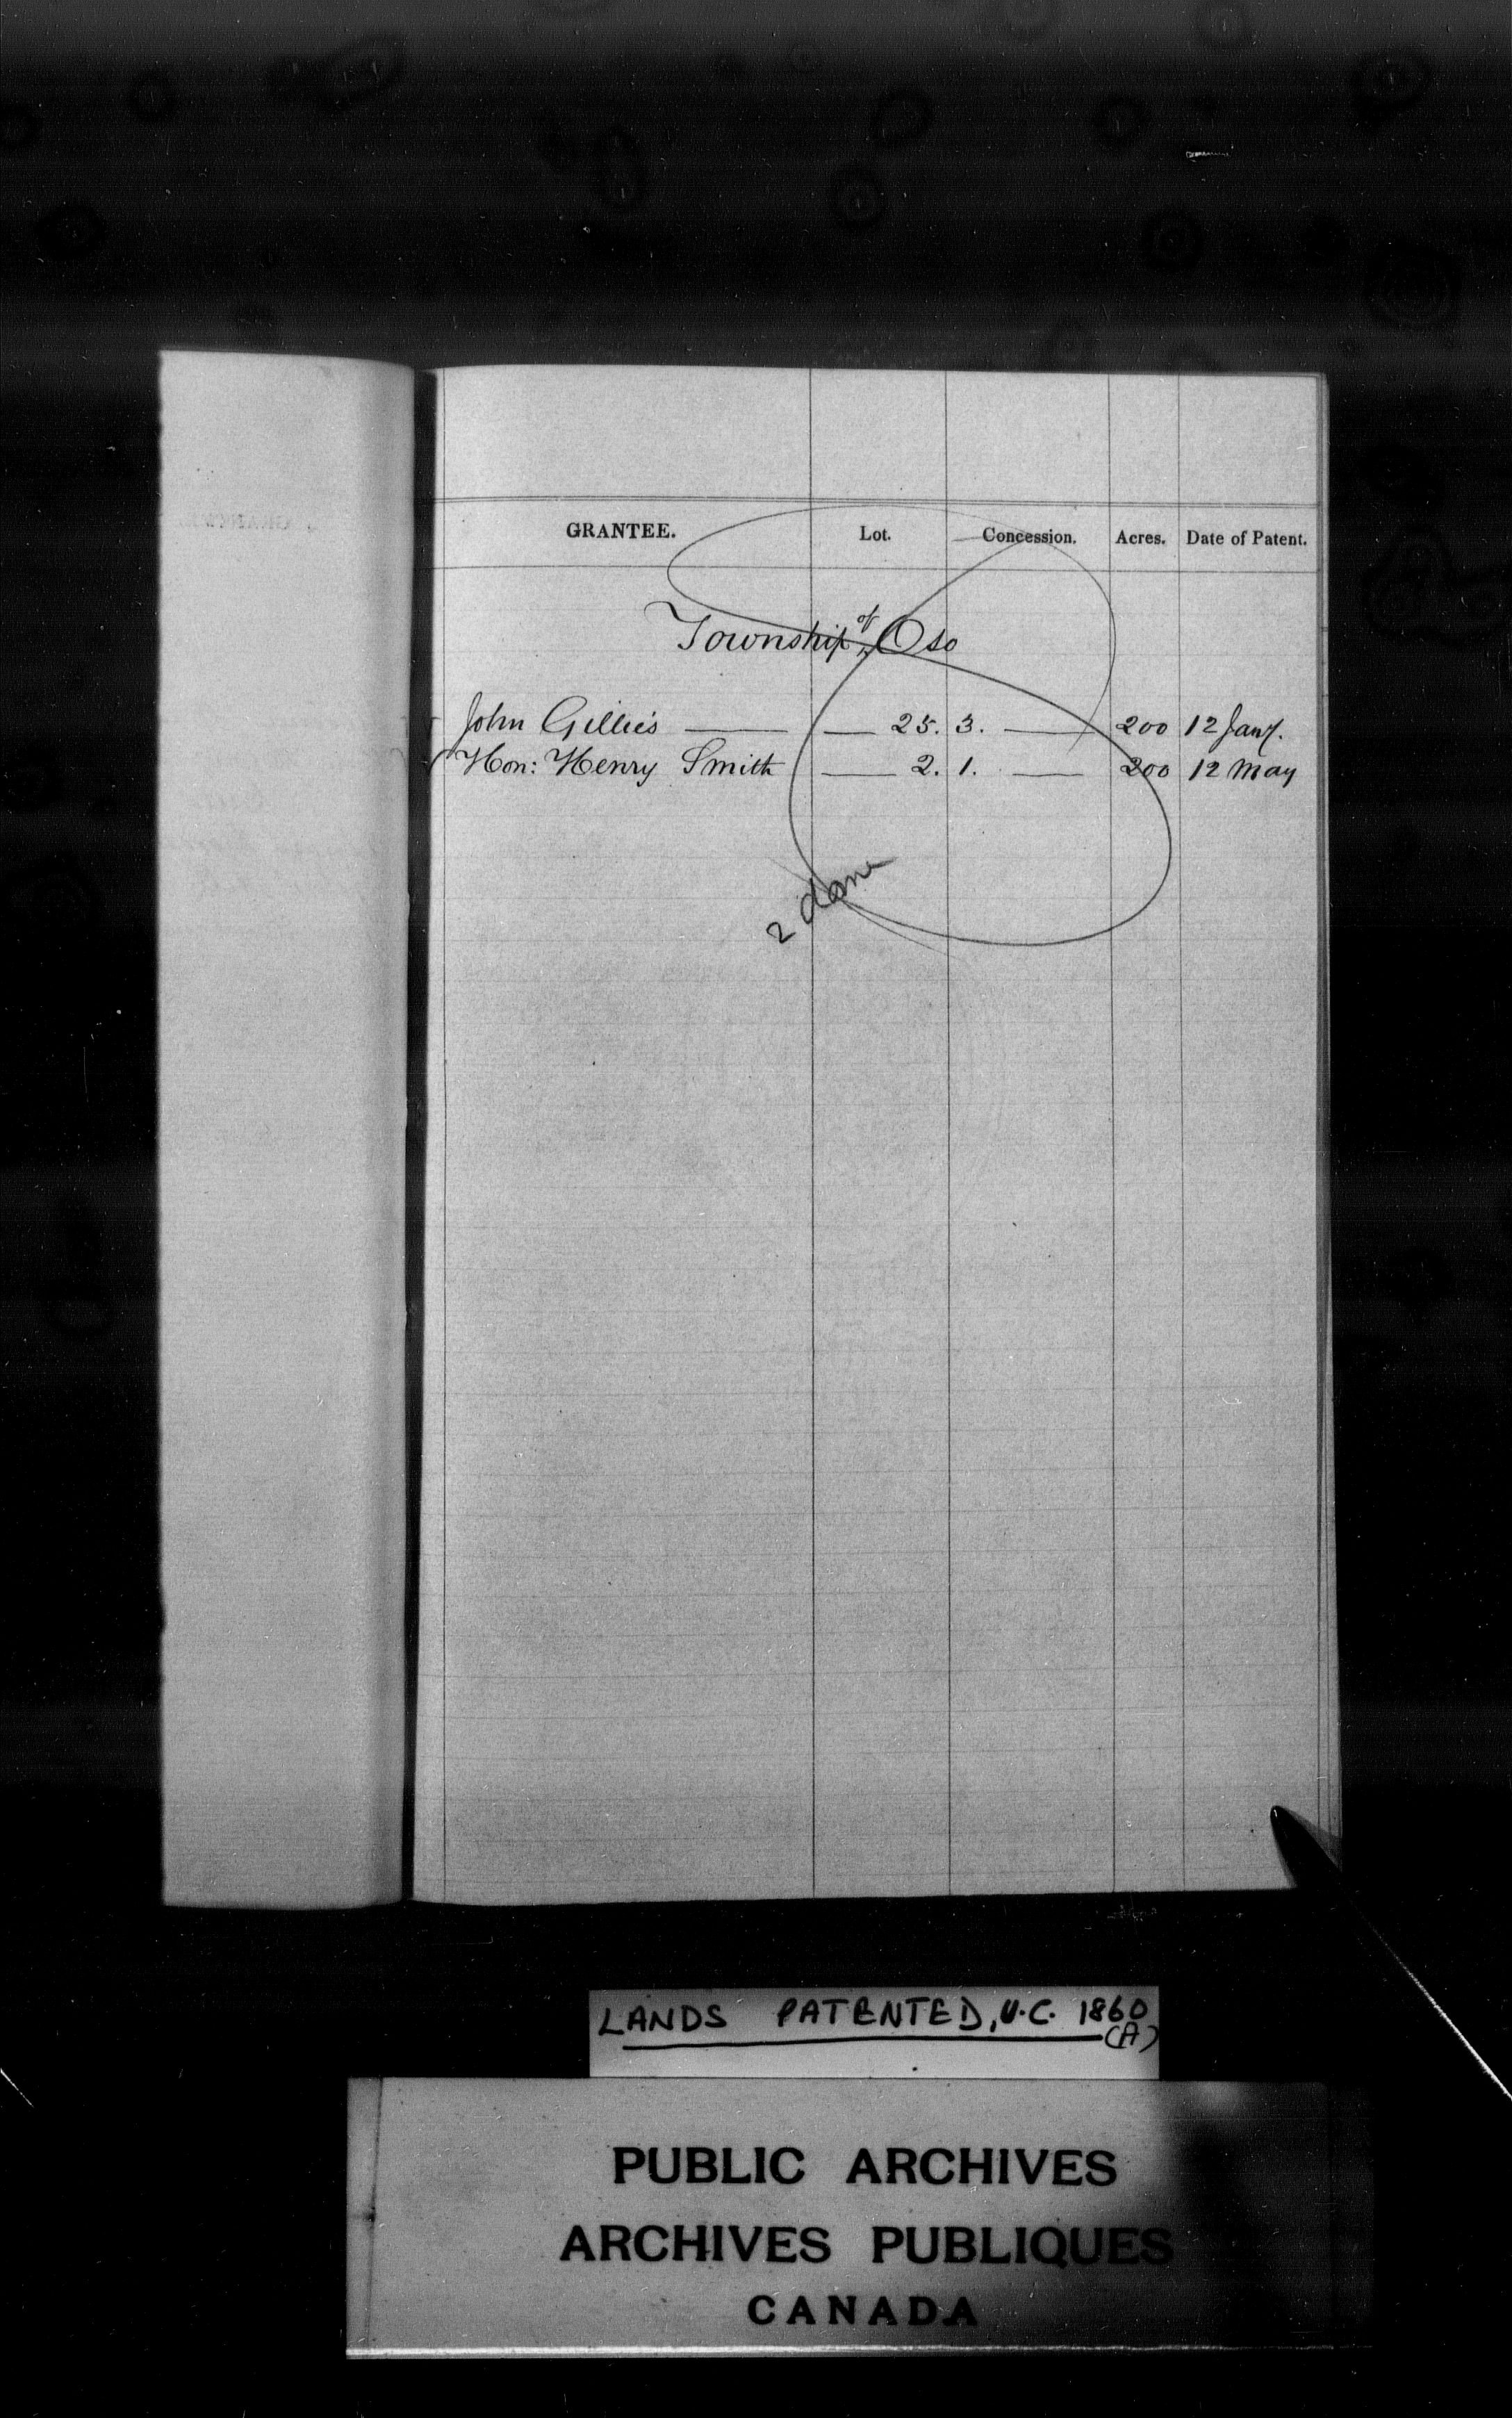 GRANTEE. Lot. Concession. Acres. Date of Patent.
Township of Oso
John Gillies — — 25. 3. — 200 12 Jany.
Hon: Henry Smith — 2. 1. — 200 12 May
2 done
LANDS PATENTED, U.C. 1860
(A)
PUBLIC ARCHIVES
ARCHIVES PUBLIQUES
CANADA